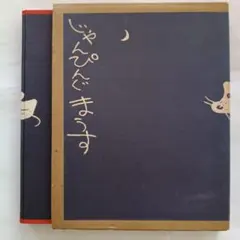 じゃんぴんぐ
まうす